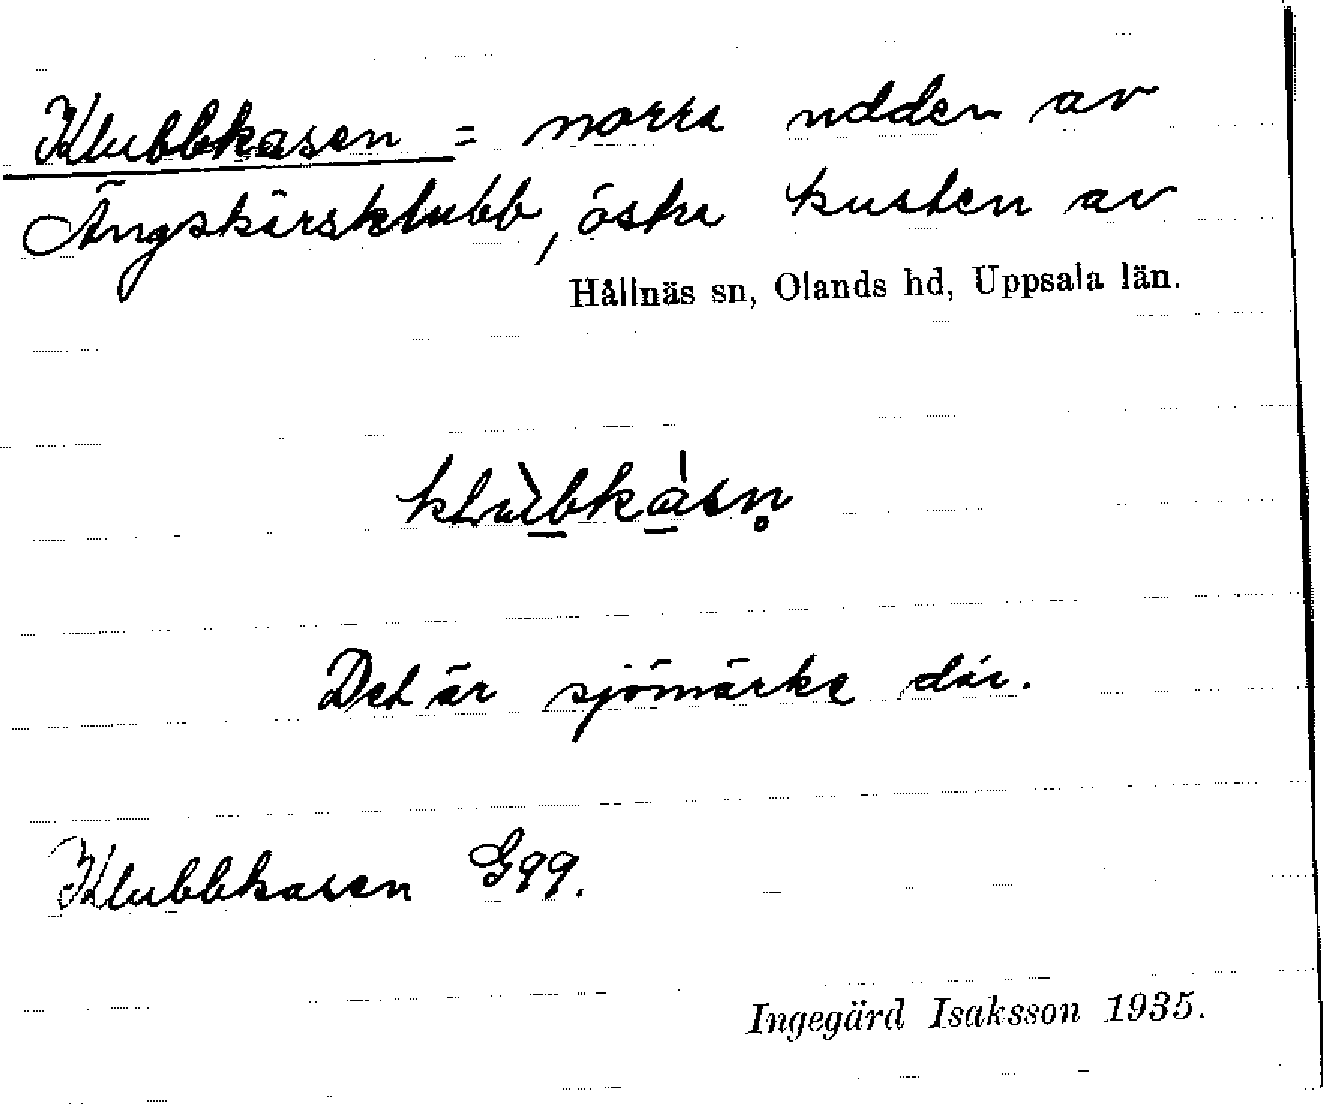 Klubbkasen = norra udden av
Ängskärsklubb, östra kusten av
Hållnäs sn, Olands hd, Uppsala län.
klùbkásn̥
Det är sjömärke där.
Klubbkasen G99.
Ingegärd Isaksson 1935.